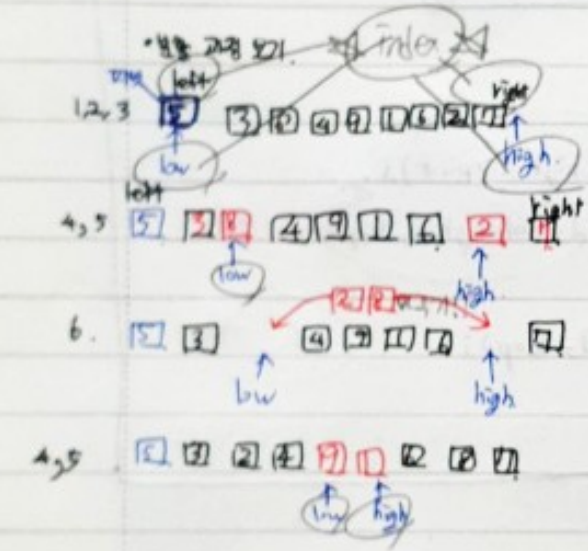 · 분할 과정 보기. index
피벗 left right
1,2,3 5 3 8 4 9 1 6 2 7
low high
left right
4,5 5 3 8 4 9 1 6 2 7
low high
2 8
6. 5 3 4 9 1 6 7
low high
4,5 5 3 2 4 9 1 8 7
low high